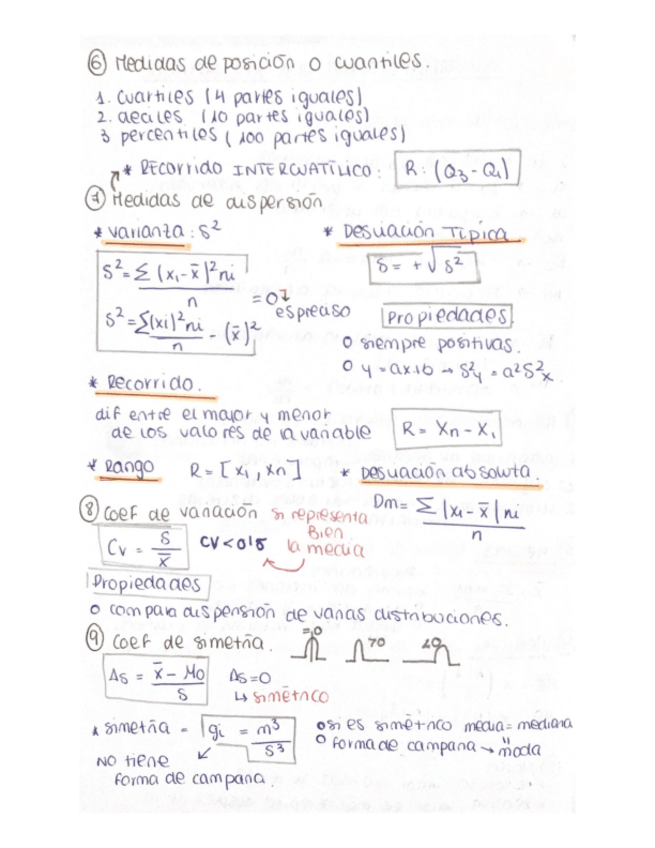 ⑥ Medidas de posición o cuantiles.
1. cuartiles (4 partes iguales)
2. deciles (10 partes iguales)
3 percentiles (100 partes iguales)
* RECORRIDO INTERCUATÍLICO: R: (Q₃ - Q₁)
⑦ Medidas de dispersión
* varianza: S²
* Desviación Típica
S² = Σ (xᵢ - x̄)² nᵢ / n
S² = Σ(xi)² nᵢ / n - (x̄)²
= 0 ↴ es preciso
S = + √S²
Propiedades
o siempre positivas.
o y = ax+b → S²y = a²S²x
* Recorrido.
dif entre el mayor y menor
de los valores de la variable
R = Xn - X₁
* Rango R = [x₁, xn]
* Desviación absoluta.
Dm = Σ |xᵢ - x̄| nᵢ / n
⑧ Coef de variación
Cv = S / x̄
CV < 0'5
si representa
Bien
la media
Propiedades
o compara dispersión de varias distribuciones.
⑨ Coef de simetría.
=0 >0 <0
As = x̄ - Mo / S
As = 0
↳ simétrico
* simetría = gᵢ = m³ / S³
NO tiene
forma de campana.
o si es simétrico media = mediana
"
o forma de campana → moda